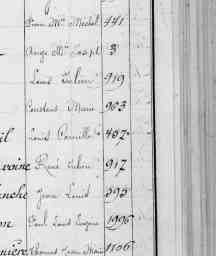 Pierre Mie Michel 441
Ange Mie Joseph 3
Louis Julien 919
Constant Marie 903
il Louis Corneille 457
voine René Julien 917
anche Jean Louis 595
on Paul Louis Eugène 1996
nière Thomas Jean Marie 1106